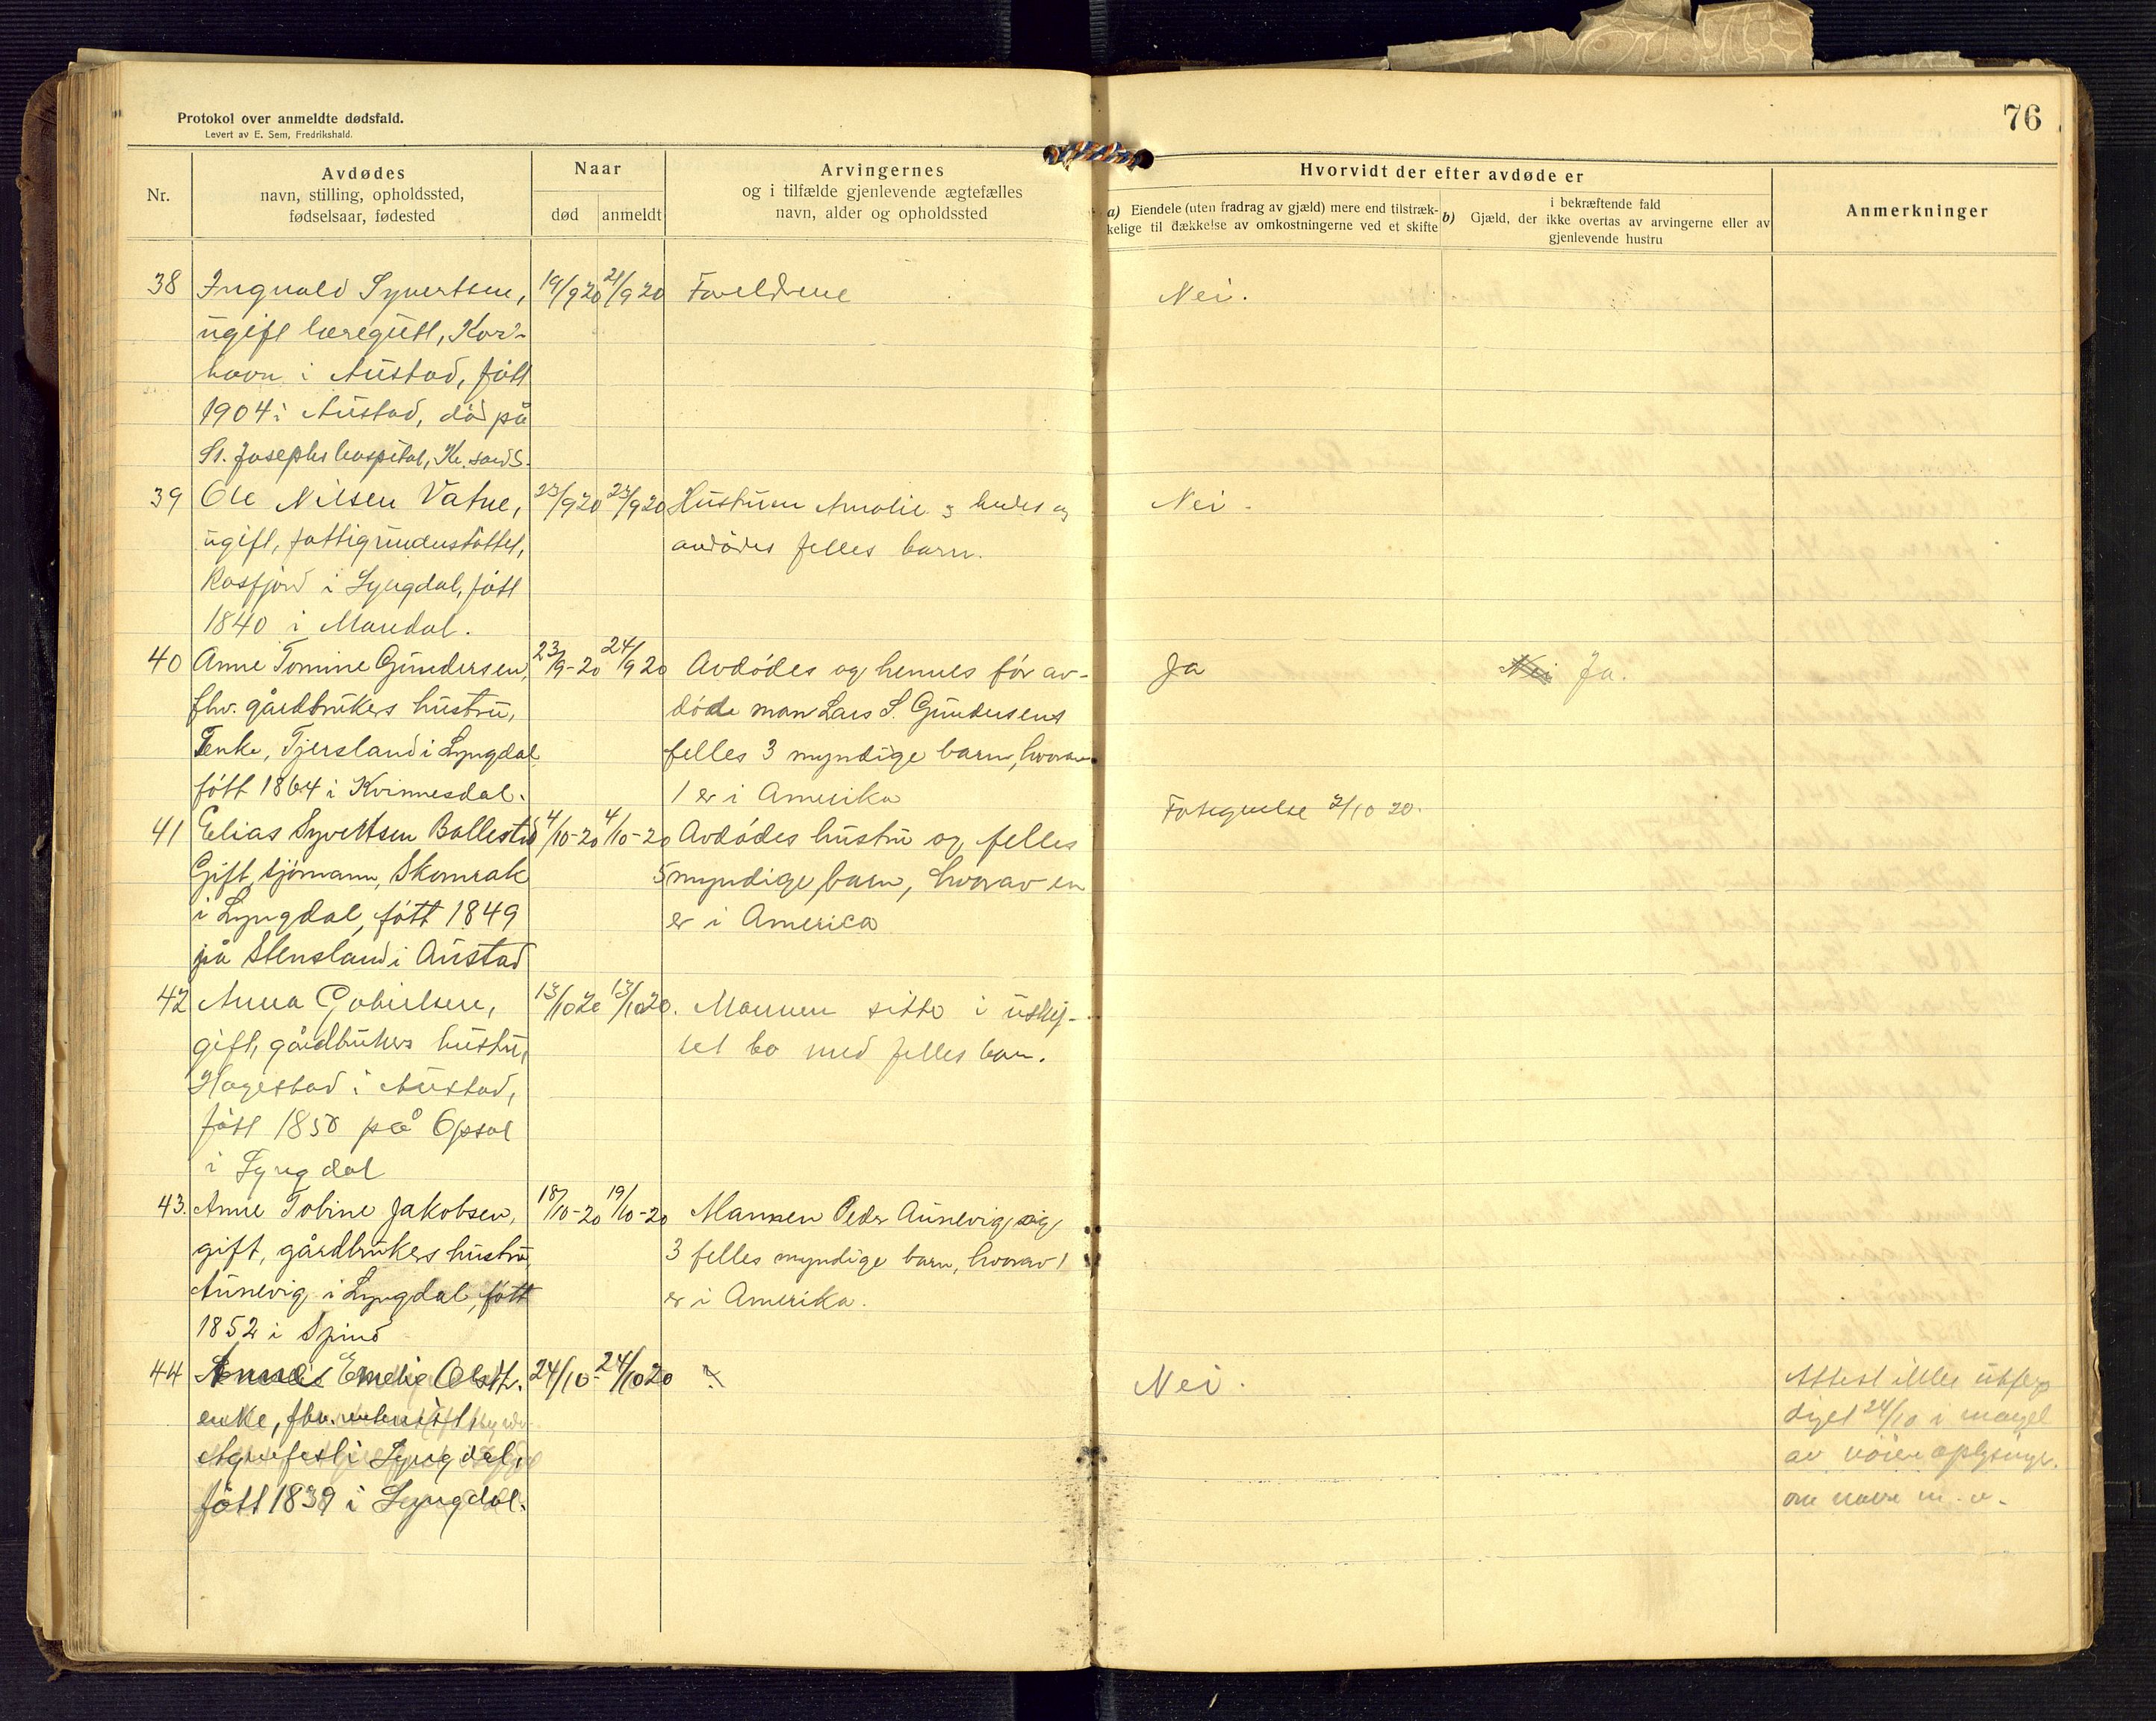 Protokol over anmeldte dødsfald.
Levert av E. Sem, Fredrikshald.
76
Nr.
Avdødes
navn, stilling, opholdssted,
fødselsaar, fødested
Naar
død
anmeldt
Arvingernes
og i tilfælde gjenlevende ægtefælles
navn, alder og opholdssted
Hvorvidt der efter avdøde er
a) Eiendele (uten fradrag av gjæld) mere end tilstræk-
kelige til dækkelse av omkostningerne ved et skifte
i bekræftende fald
b) Gjæld, der ikke overtas av arvingerne eller av
gjenlevende hustru
Anmerkninger
38 Ingvald Syvertsen, 19/9 20 21/9 20 Foreldrene Nei.
ugift læregutt, Kors-
havn i Austad, født
1904 i Austad, død på
St. Josephs hospital, Kr.sand S.
39 Ole Nilsen Vatne, 23/9 20 23/9 20 Hustruen Amalie 3 hendes og Nei.
ugift, fattigunderstøttet, avdødes felles barn.
Rosfjord i Lyngdal, født
1840 i Mandal.
40 Anne Tomine Gundersen, 23/9-20 24/9 20 Avdødes og hennes før av- Ja Nei Ja.
fhv. gårdbrukers hustru, døde man Lars S. Gundersens
Enke, Tjersland i Lyngdal felles 3 myndige barn, hvorav
født 1864 i Kvinnesdal. 1 er i Amerika
41 Elias Syvertsen Ballestad 4/10-20 4/10-20 Avdødes hustru og felles Forseglelse 7/10 20.
Gift, sjømann, Skomrak 5 myndige barn, hvorav en
i Lyngdal, født 1849 er i America
på Stensland i Austad
42 Anna Gabrielsen, 13/10 20 13/10 20. Mannen sitter i uskif-
gift, gårdbrukers hustru, tet bo med felles barn.
Hagestad i Austad,
født 1858 på Opsal
i Lyngdal
43. Anne Tobine Jakobsen, 18/10-20 19/10-20 Mannen Peder Aunevig, og
gift, gårdbrukers hustru, 3 felles myndige barn, hvorav 1
Aunevig i Lyngdal, født er i Amerika.
1852 i Spind
44 Emelie 24/10- 24/10 20 ? Nei. Attest ikke utfer-
enke, fhv. diget 24/10 i mangel
Agnefest i Lyngdal, av nøiere oplysninger
født 1839 i Lyngdal. om navn m. v.